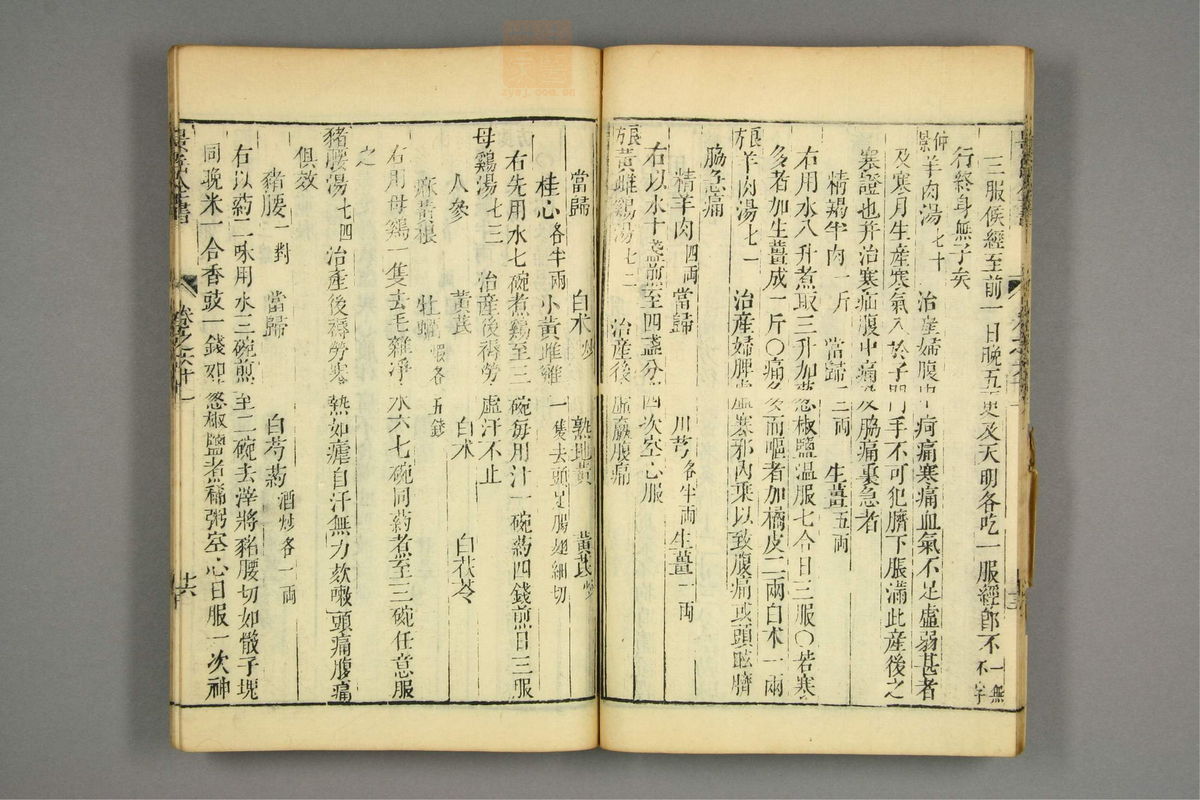 三服候經至前一日晚五更及天明各吃一服經卽不一無不字
行終身無子矣
仲景羊肉湯七十 治產婦腹中㽲痛寒痛血氣不足虛弱甚者
及寒月生產寒氣入於子門手不可犯臍下脹滿此產後之
寒證也并治寒疝腹中痛及脇痛裏急者
精羯羊肉一斤 當歸三兩 生薑五兩
右用水八升煮取三升加葱椒鹽温服七合日三服○若寒
多者加生薑成一斤○痛多而嘔者加橘皮二兩白朮一兩
良方羊肉湯七一 治產婦脾虛寒邪內乘以致腹痛或頭眩臍
脇急痛
精羊肉四兩 當歸 川芎各半兩 生薑一兩
右以水十盞煎至四盞分四次空心服
良方黃雌鷄湯七二 治產後虛羸腹痛
當歸 白朮炒 熟地黃 黃芪炒
桂心各半兩 小黃雌雞一隻去頭足腸翅細切
右先用水七碗煮鷄至三碗每用汁一碗藥四錢煎日三服
母鷄湯七三 治產後褥勞虛汗不止
人參 黃芪 白朮 白茯苓
麻黃根 牡蠣煆各五錢
右用母鷄一隻去毛雜淨水六七碗同藥煮至三碗任意服
之
豬腰湯七四 治產後褥勞寒熱如瘧自汗無力欬嗽頭痛腹痛
俱效
豬腰一對 當歸 白芍藥酒炒各一兩
右以藥二味用水三碗煎至二碗去滓將豬腰切如骰子塊
同晚米一合香豉一錢加葱椒鹽煮稀粥空心日服一次神
景岳全書
卷之六十一
十六